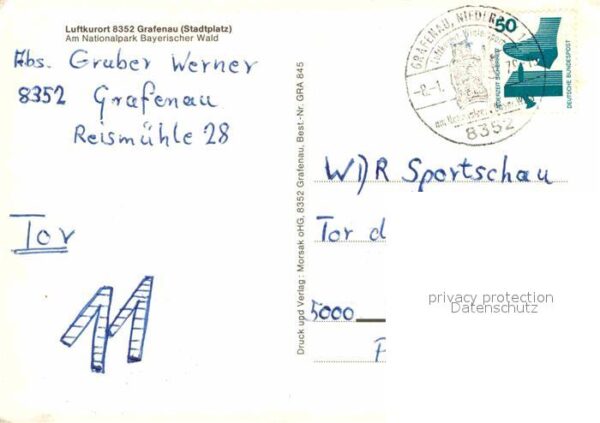 Luftkurort 8352 Grafenau (Stadtplatz)
Am Nationalpark Bayerischer Wald
Abs. Gruber Werner
8352 Grafenau
Reismühle 28
Tor
11
Druck und Verlag: Morsak oHG, 8352 Grafenau, Best.-Nr. GRA 845
GRAFENAU, NIEDERBAY 1
8352
50
JEDERZEIT SICHERHEIT
DEUTSCHE BUNDESPOST
WDR Sportschau
Tor d
5000
privacy protection
Datenschutz